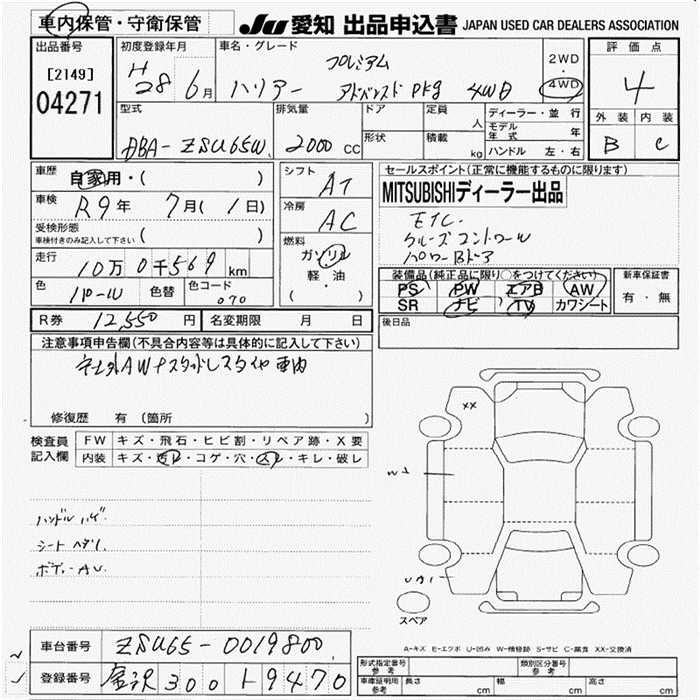 車内保管・守衛保管
JU 愛知 出品申込書 JAPAN USED CAR DEALERS ASSOCIATION
出品番号
[2149]
04271
初度登録年月
H28 6月
車名・グレード
プレミアム
ハリアー アドバンスド PKg 4WD
2WD
・
4WD
評価点
4
外装 内装
B C
型式
DBA-ZSU65W
排気量
2000 CC
ドア
形状
定員 人
積載 kg
ディーラー・並行
モデル年式 年
ハンドル 左・右
車歴
自家用・( )
車検
R9年 7月(1日)
受検形態
車検付きのみ記入して下さい ( )
走行
10万0千569km
色
パール
色替
色コード
070
シフト
AT
冷房
AC
燃料
ガソリン
軽・油
( ・ )
セールスポイント(正常に機能するものに限ります)
MITSUBISHIディーラー出品
ETC.
クルーズコントロール
パワーBドア
装備品(純正品に限り○をつけてください)
PS PW エアB AW
SR ナビ TV カワシート
新車保証書
有・無
R券 12,550円
名変期限 月 日
後日品
注意事項申告欄(不具合内容等は具体的に記入して下さい)
社外AW+スタッドレスタイヤ車内
修復歴 有(箇所
検査員記入欄
FW キズ・飛石・ヒビ割・リペア跡・X要
内装 キズ・汚レ・コゲ・穴・スレ・キレ・破レ
ハンドル ハゲ.
シート ヘタリ.
ボディーAU.
XX
W1
UA1
スペア
A-キズ E-エクボ U-凹み W-補修跡 S-サビ C-腐食 XX-交換済
車台番号 ZSU65-0019800
登録番号 金沢 300 ト 9470
形式指定番号 参考
類別区分番号 参考
車庫証明用 参考 長さ cm 幅 cm 高さ cm